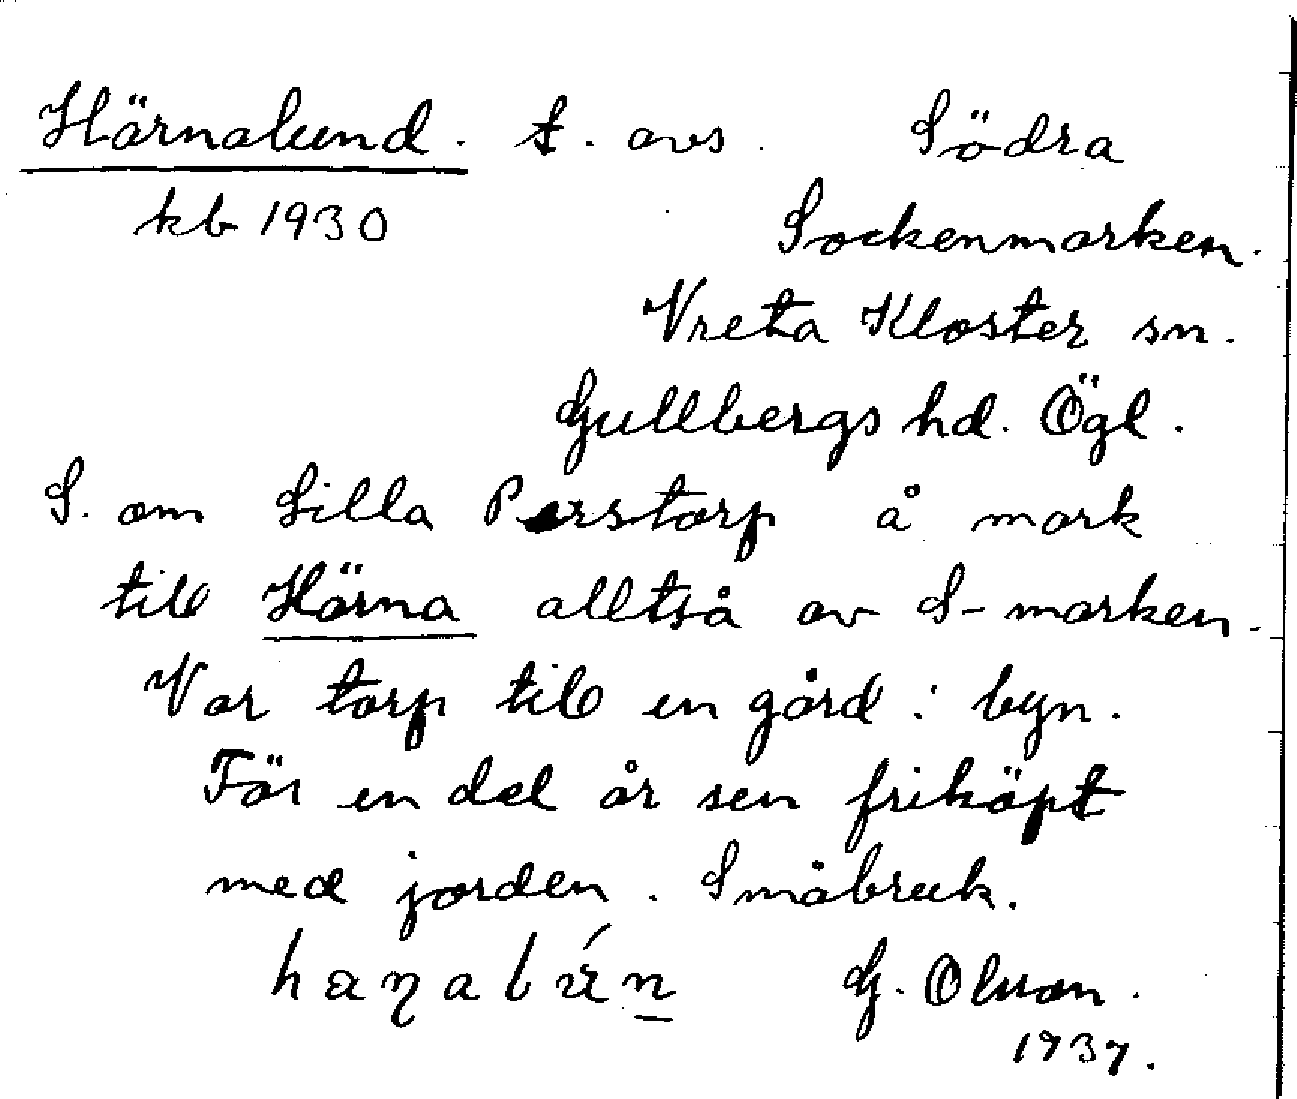 Härnalund. t. avs. Södra
kb 1930 Sockenmarken.
Vreta Kloster sn.
Gullbergs hd. Ögl.
S. om Lilla Perstorp å mark
till Härna alltså av S-marken.
Var torp till en gård i byn.
För en del år sen friköpt
med jorden. Småbruk.
G. Olsson.
1937.